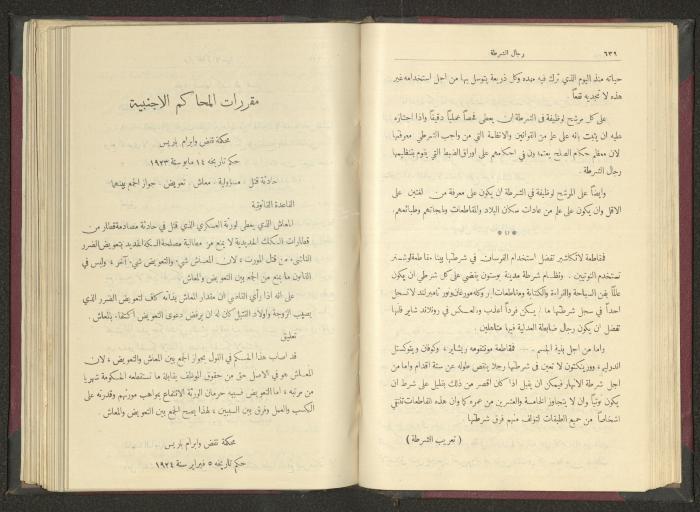 ٦٣٦
رجال الشرطة
حياته منذ اليوم الذي ترك فيه مهده وكل ذريعة يتوسل بها من اجل استخدامه غير
هذه لا تجديه نفعاً
على كل مرشح لوظيفة في الشرطة ان يعطى فحصاً عملياً دقيقاً واذا اجتازه
عليه ان يثبت بانه على علم من القوانين والانظمة التي من واجب الشرطي معرفتها
لان معظم حكام الصلح يعتمدون في احكامهم على اوراق الضبط التي يقوم بتنظيمها
رجال الشرطة .
وايضاً على المرشح لوظيفة في الشرطة ان يكون على معرفة من لغتين على
الاقل وان يكون على علم من عادات سكان البلاد والمقاطعات ولهجاتهم وطبائعهم
فمقاطعة لانكشاير تفضل استخدام الفرسان في شرطتها بينا مقاطعة
تستخدم النوتيين . ونظام شرطة مدينة بوستون يقضي على كل شرطي ان يكون
عالماً بفن السباحة والقراءة والكتابة ومقاطعات لا تسجل
احداً في سجل شرطتها ما لم يكن فرداً أعذب وبالعكس في روتلاند شاير فانها
تفضل ان يكون رجال ضابطة العدلية فيها متأهلين .
واما من اجل بنية الجسم — فمقاطعة ريشاير ، وكوفان ويتوكستل
اندولیم ، ووربنكتون لا تعين في شرطتها رجلا ينقص طوله عن ستة اقدام واما من
اجل شرطة الانهار فيمكن ان يقبل اذا كان اقصر من ذلك بقليل على شرط ان
يكون نوتياً وان لا يتجاوز الخامسة والعشرين من عمره كما وان هذه المقاطعات تنتقي
اشخاصاً من جميع الطبقات لتؤلف منهم فرق شرطتها .
( تعريب الشرطة )
مقررات المحاكم الاجنبية
محكمة نقض وابرام باريس
حكم تاريخه ١٤ مايو سنة ١٩٢٣
حادثة قتل . مسؤولية . معاش . تعويض . جواز الجمع بينهما
القاعدة القانونية
المعاش الذي يعطى لورثة العسكري الذي قتل في حادثة مصادمة قطار من
قطارات السكك الحديدية لا يمنع من مطالبة مصلحة السكة الحديد بتعويض الضرر
الناشيء من قتل المورث ، لان المعاش شيء والتعويض شيء آخر ، وليس في
القانون ما يمنع من الجمع بين التعويض والمعاش
على انه اذا رأي القاضي ان مقدار المعاش بذاته كاف لتعويض الضرر الذي
يصيب الزوجة واولاد القتيل كان له ان يرفض دعوى التعويض اكتفاء بالمعاش .
تعليق
قد اصاب هذا الحكم في القول بجواز الجمع بين المعاش والتعويض ، لان
المعاش هو في الاصل حق من حقوق الموظف يقابله ما تستقطعه الحكومة شهريا
من مرتبه ، اما التعويض فسببه حرمان الورثة الانتفاع بمواهب مورثهم وقدرته على
الكسب والعمل وفرق بين السببين ، لهذا يصح الجمع بين التعويض والمعاش .
محكمة نقض وابرام باريس
حكم تاريخه ٥ فبراير سنة ١٩٢٤